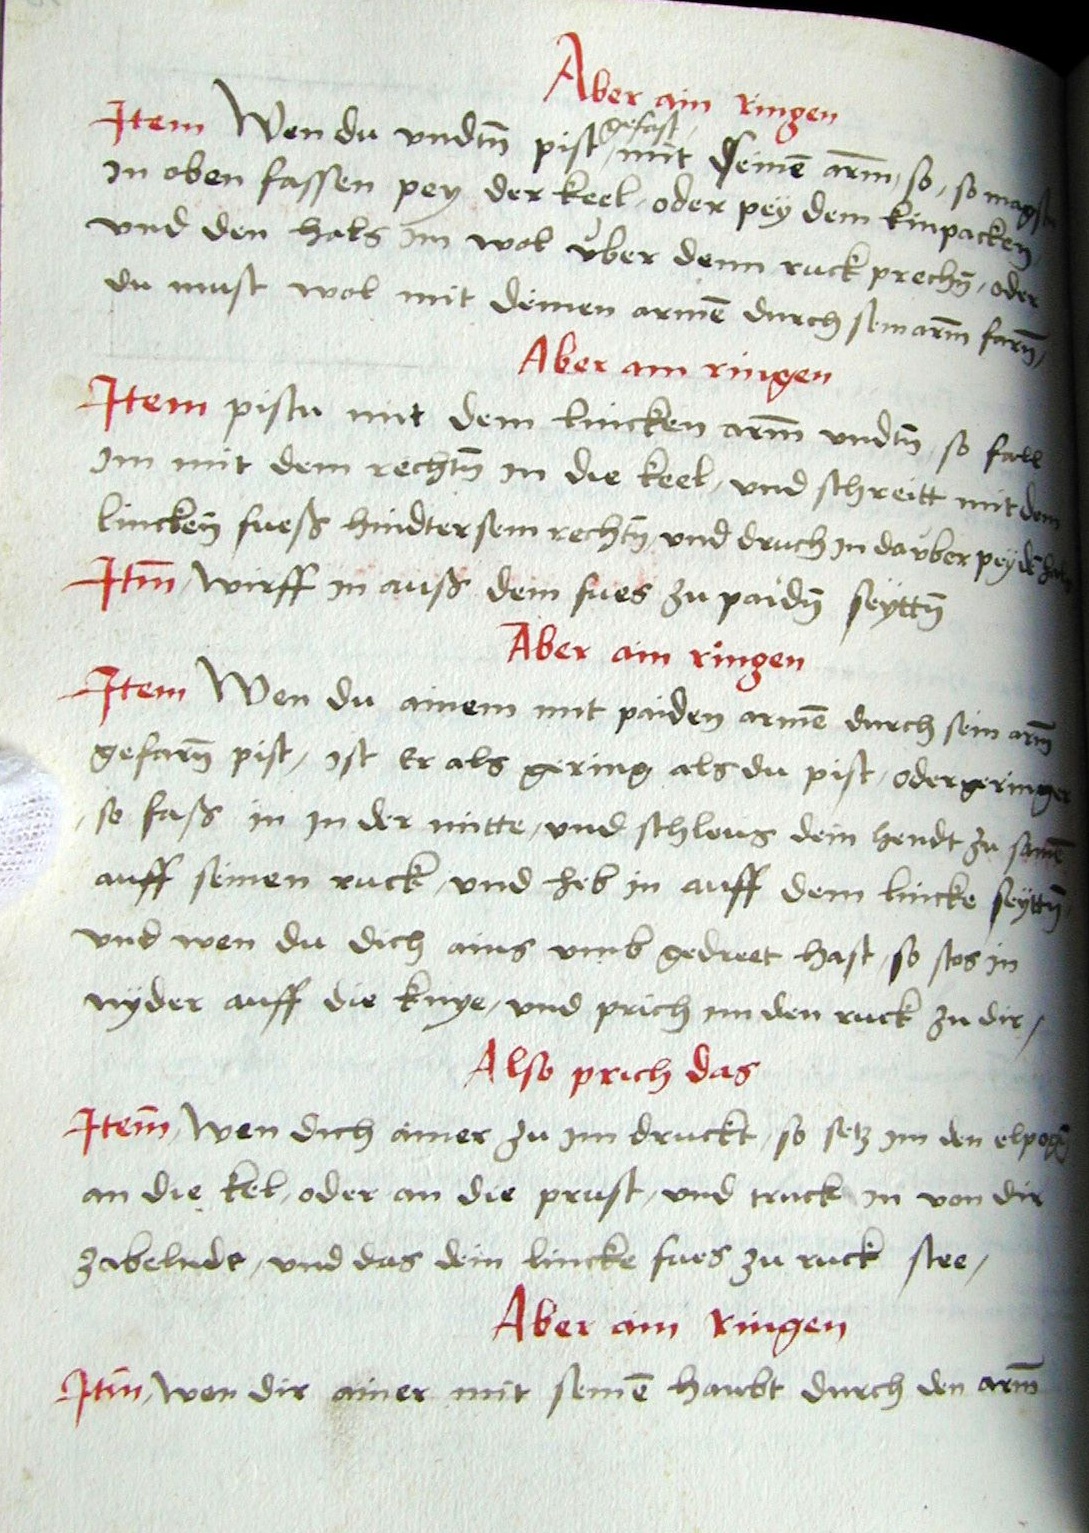 Aber ain ringen
Item Wen du vndtn̄ pist gefast mit deinē arm̄, so, so magstu
In oben fassen pey der keel, oder pey dem kinpacken,
vnd den hals im wol vber denn ruck prechn̄, oder
du must wol mit deinen armē durch sein arm̄ farn̄,
Aber ain ringen
Item pistu mit dem lincken arm̄ vndtn̄, so fall
im mit dem rechtn̄ in die keel, vnd schreitt mit dem
linckeñ fueß hindter sein rechtn̄ vnd druch in da vber pey dē hals
Itm̄, wirff in auß dem fues zu paidn̄ seÿttn̄
Aber ain ringen
Item Wen du ainem mit paiden armē durch sein arm̄
gefarn̄ pist, ist er als gering als du pist, oder geringer
, so faß in in der mitte, vnd schleus dein hendt zu samē
auff seinen ruck, vnd heb in auff dem lincke seÿttn̄,
vnd wen du dich ains vmb gedreet hast, so stos in
nyder auff die knye, vnd prich im den ruck zu dir,
Also prich das
Item̄, Wen dich ainer zu im druckt, so setz im den elpogn̄
an die kel, oder an die prust, vnd truck in von dir
zabelndt, vnd das dein lincke fues zu ruck stee,
Aber ain ringen
Itm̄, wen dir ainer mit seinē haubt durch den arm̄